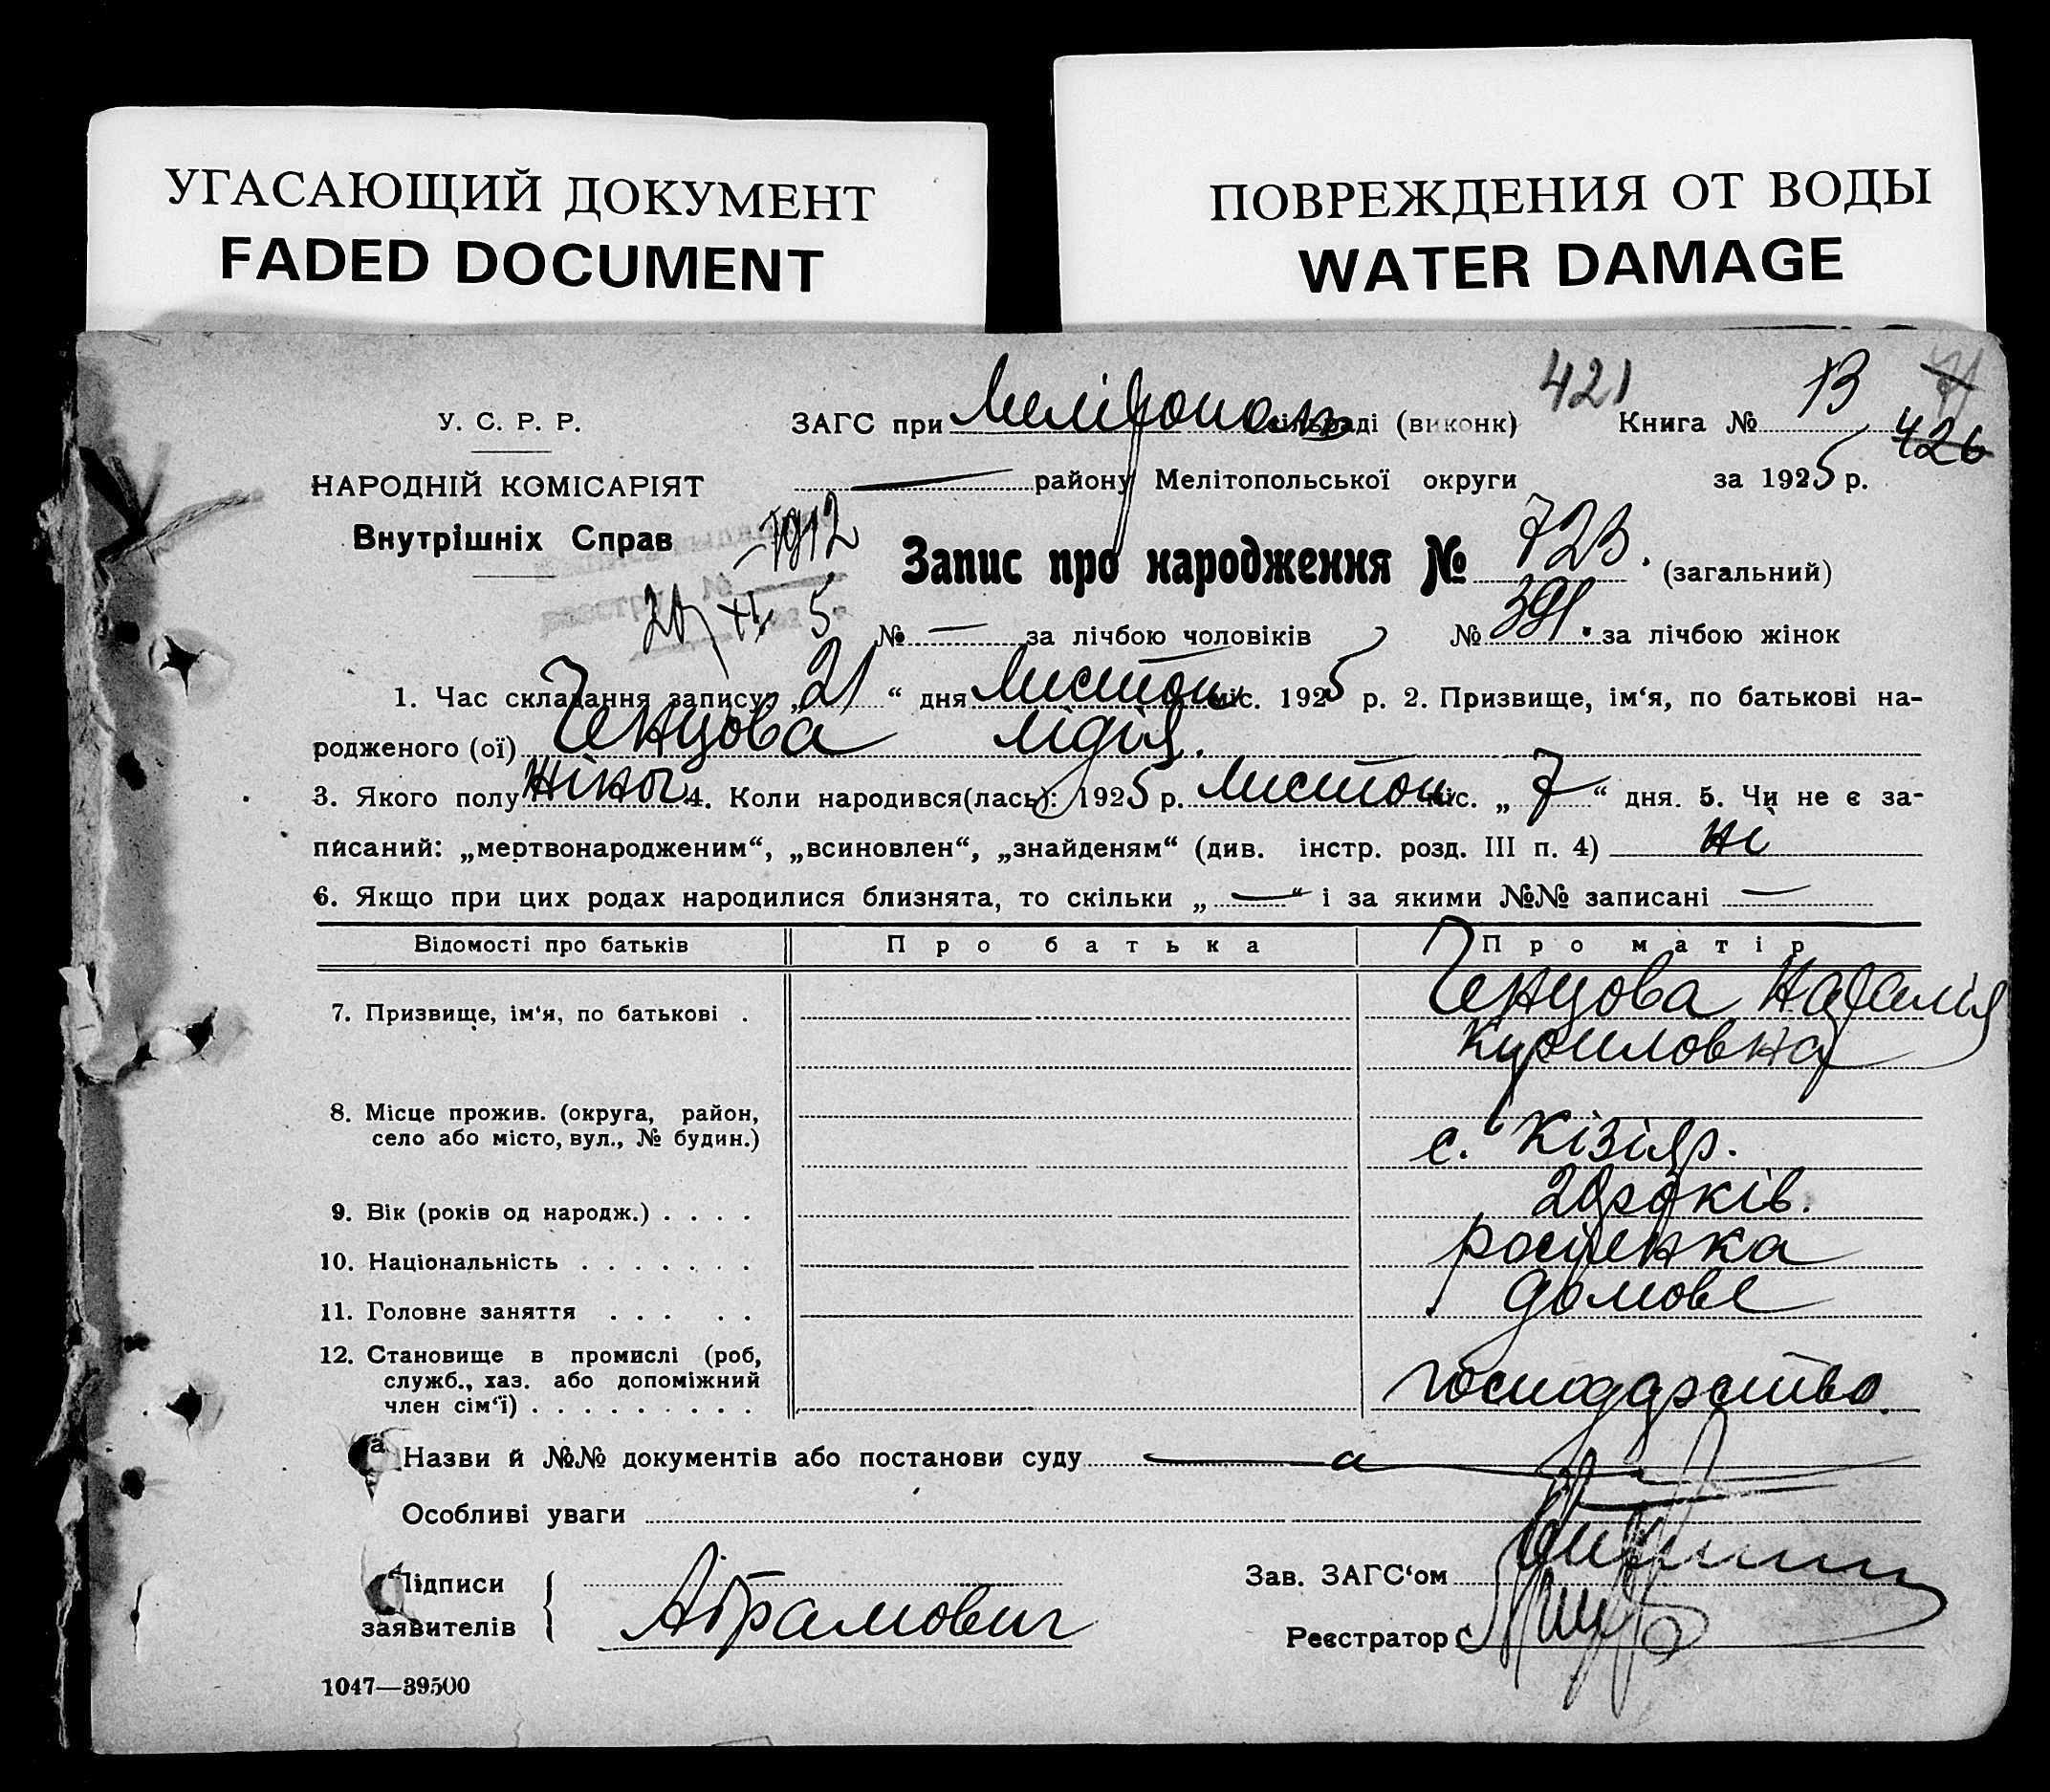 УГАСАЮЩИЙ ДОКУМЕНТ
FADED DOCUMENT
ПОВРЕЖДЕНИЯ ОТ ВОДЫ
WATER DAMAGE
421
71
У. С. Р. Р.
ЗАГС при Мелітополь сільраді (виконк) Книга № 13
426
НАРОДНІЙ КОМІСАРІЯТ
— району Мелітопольської округи за 1925 р.
Внутрішніх Справ
7912
Запис про народження № 723. (загальний)
реєстру №
20/XI 5
№ — за лічбою чоловіків № 391. за лічбою жінок
1. Час складання запису „21“ дня Листоп міс. 1925 р. 2. Призвище, ім‘я, по батькові на-
родженого (ої) Ченцова Лідія.
3. Якого полу жіноч. 4. Коли народився(лась): 1925 р. Листоп міс. „7“ дня. 5. Чи не є за-
писаний: „мертвонародженим“, „всиновлен“, „знайденям“ (див. інстр. розд. III п. 4) ні
6. Якщо при цих родах народилися близнята, то скільки „—“ і за якими №№ записані —
Відомості про батьків Про батька Про матір
7. Призвище, ім‘я, по батькові . Ченцова Наталія
Куриловна
8. Місце прожив. (округа, район,
село або місто, вул., № будин.) с. Кізіяр.
9. Вік (років од народж.) . . . . 20 років.
10. Національність . . . . . . . росіянка
11. Головне заняття . . . . . домове
12. Становище в промислі (роб,
служб., хаз. або допоміжний
член сім‘ї) . . . . . . . . . господарство.
а Назви й №№ документів або постанови суду
Особливі уваги
Підписи
заявителів
Абрамович
Зав. ЗАГС‘ом
Реєстратор
1047—39500